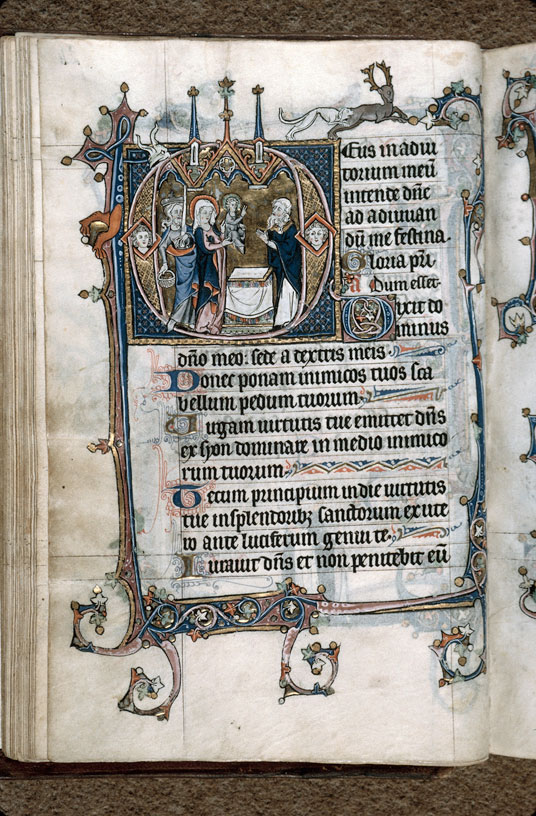 Eus in adiu
torium meū
intende dn̄e
ad adiuuan
dū me festina.
Gloria pr̄i
a̅ Dum esset
Dixit do
minus
dn̄o meo: sede a dextris meis.
Donec ponam inimicos tuos sca
bellum pedum tuorum.
Uirgam uirtutis tue emittet dn̄s
ex syon dominare in medio inimico
rum tuorum.
Tecum principium in die uirtutis
tue in splendoribꝫ sanctorum ex ute
ro ante luciferum genui te.
Iurauit dn̄s et non penitebit eū